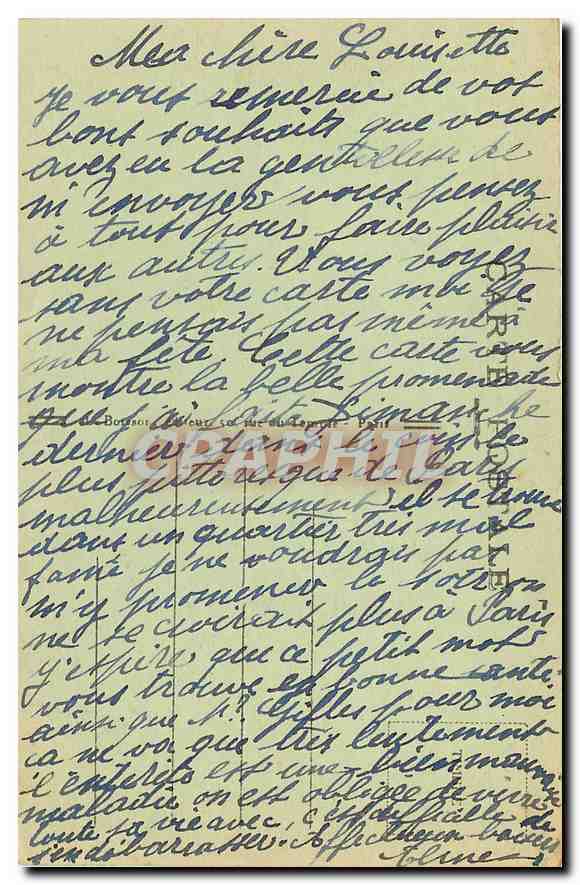 Ma chère Louisette
je vous remercie de vos
bons souhaits que vous
avez eu la gentillesse de
m'envoyer vous pensez
à tout pour faire plaisir
aux autres. Vous voyez
sans votre carte moi je
ne pensais pas même à
ma fête. Cette carte vous
montre la belle promenade
que j'ai faite Dimanche
dernier dans le coin le
plus pittoresque de Paris
malheureusement il se trouve
dans un quartier très mal
famé je ne voudrais pas
m'y promener le soir on
ne se croirait plus à Paris
j'espère que ce petit mot
vous trouve en bonne santé
ainsi que Mr Gilles pour moi
ça ne va que très lentement
l'entérite est une bien mauvaise
maladie on est obligée de vivre
toute sa vie avec, c'est difficile de
s'en débarrasser. Affectueux baisers
Aline
Boisson Editeur, 50, rue du Temple - Paris
CARTE POSTALE
CPAPHIL